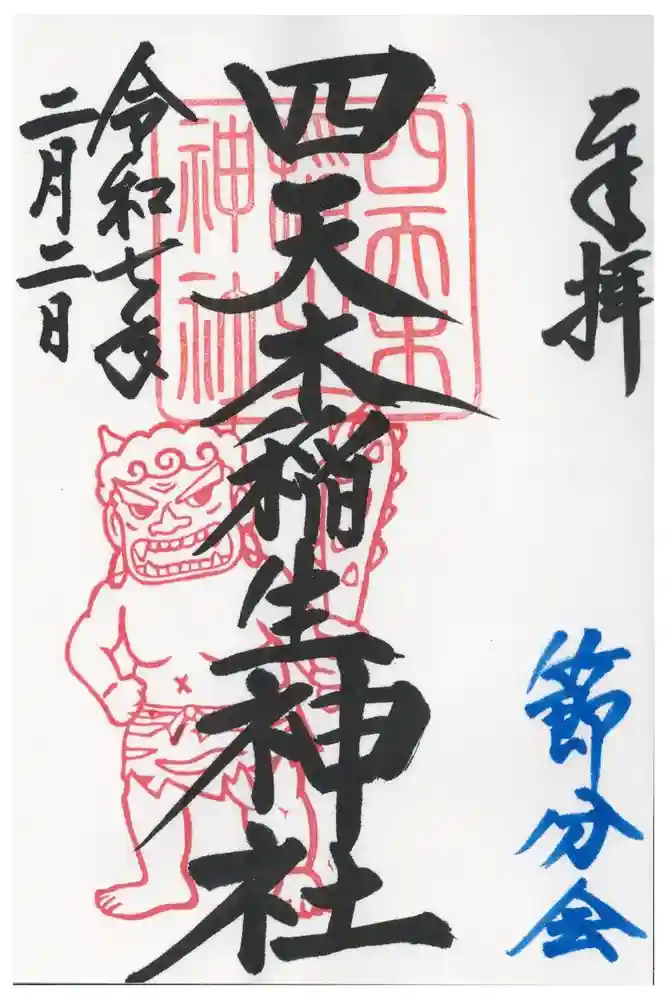 奉拝
節分会
四天木稲生神社
四天木
稲生
神社
令和七年
二月二日